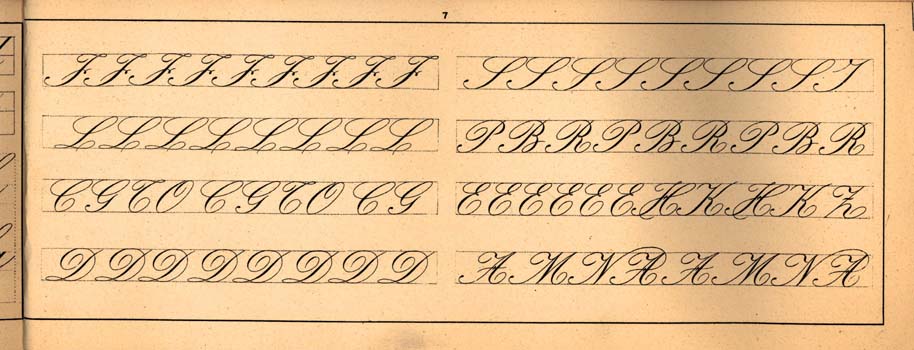 7
F F F F F F F F F
L L L L L L L L
C G T O C G T O C G
D D D D D D D D
S S S S S S S S I
P B R P B R P B R
E E E E E E H K H K Z
A M N A A M N A